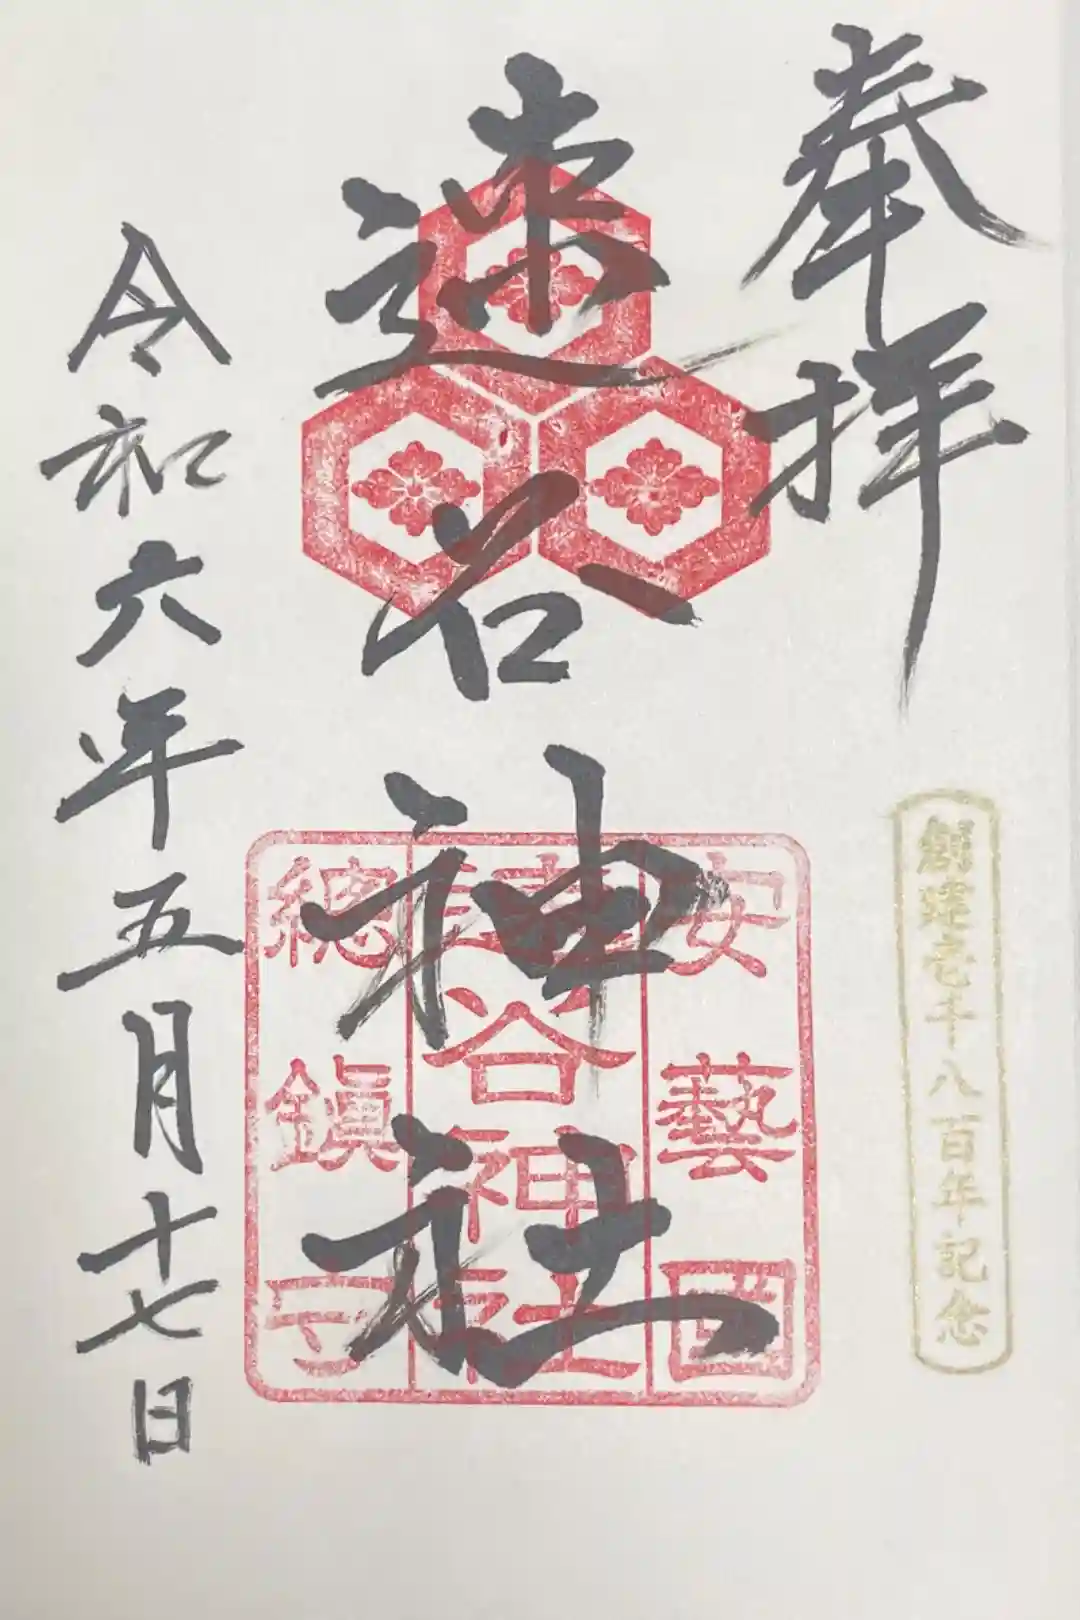 奉拝
創建壱千八百年記念
速谷神社
安藝國
速谷神社
總鎭守
令和六年五月十七日